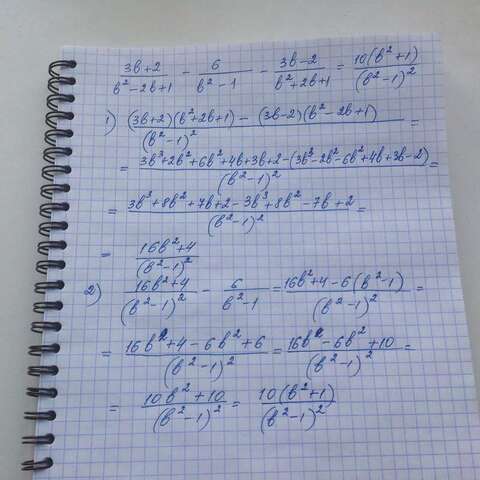 (3b+2)/(b²-2b+1) - 6/(b²-1) - (3b-2)/(b²+2b+1) = 10(b²+1)/(b²-1)²
1) ((3b+2)(b²+2b+1) - (3b-2)(b²-2b+1))/(b²-1)² =
= (3b³+2b²+6b²+4b+3b+2-(3b³-2b²-6b²+4b+3b-2))/(b²-1)² =
= (3b³+8b²+7b+2-3b³+8b²-7b+2)/(b²-1)² =
= (16b²+4)/(b²-1)²
2) (16b²+4)/(b²-1)² - 6/(b²-1) = (16b²+4-6(b²-1))/(b²-1)² =
= (16b²+4-6b²+6)/(b²-1)² = (16b²-6b²+10)/(b²-1)² =
= (10b²+10)/(b²-1)² = 10(b²+1)/(b²-1)²